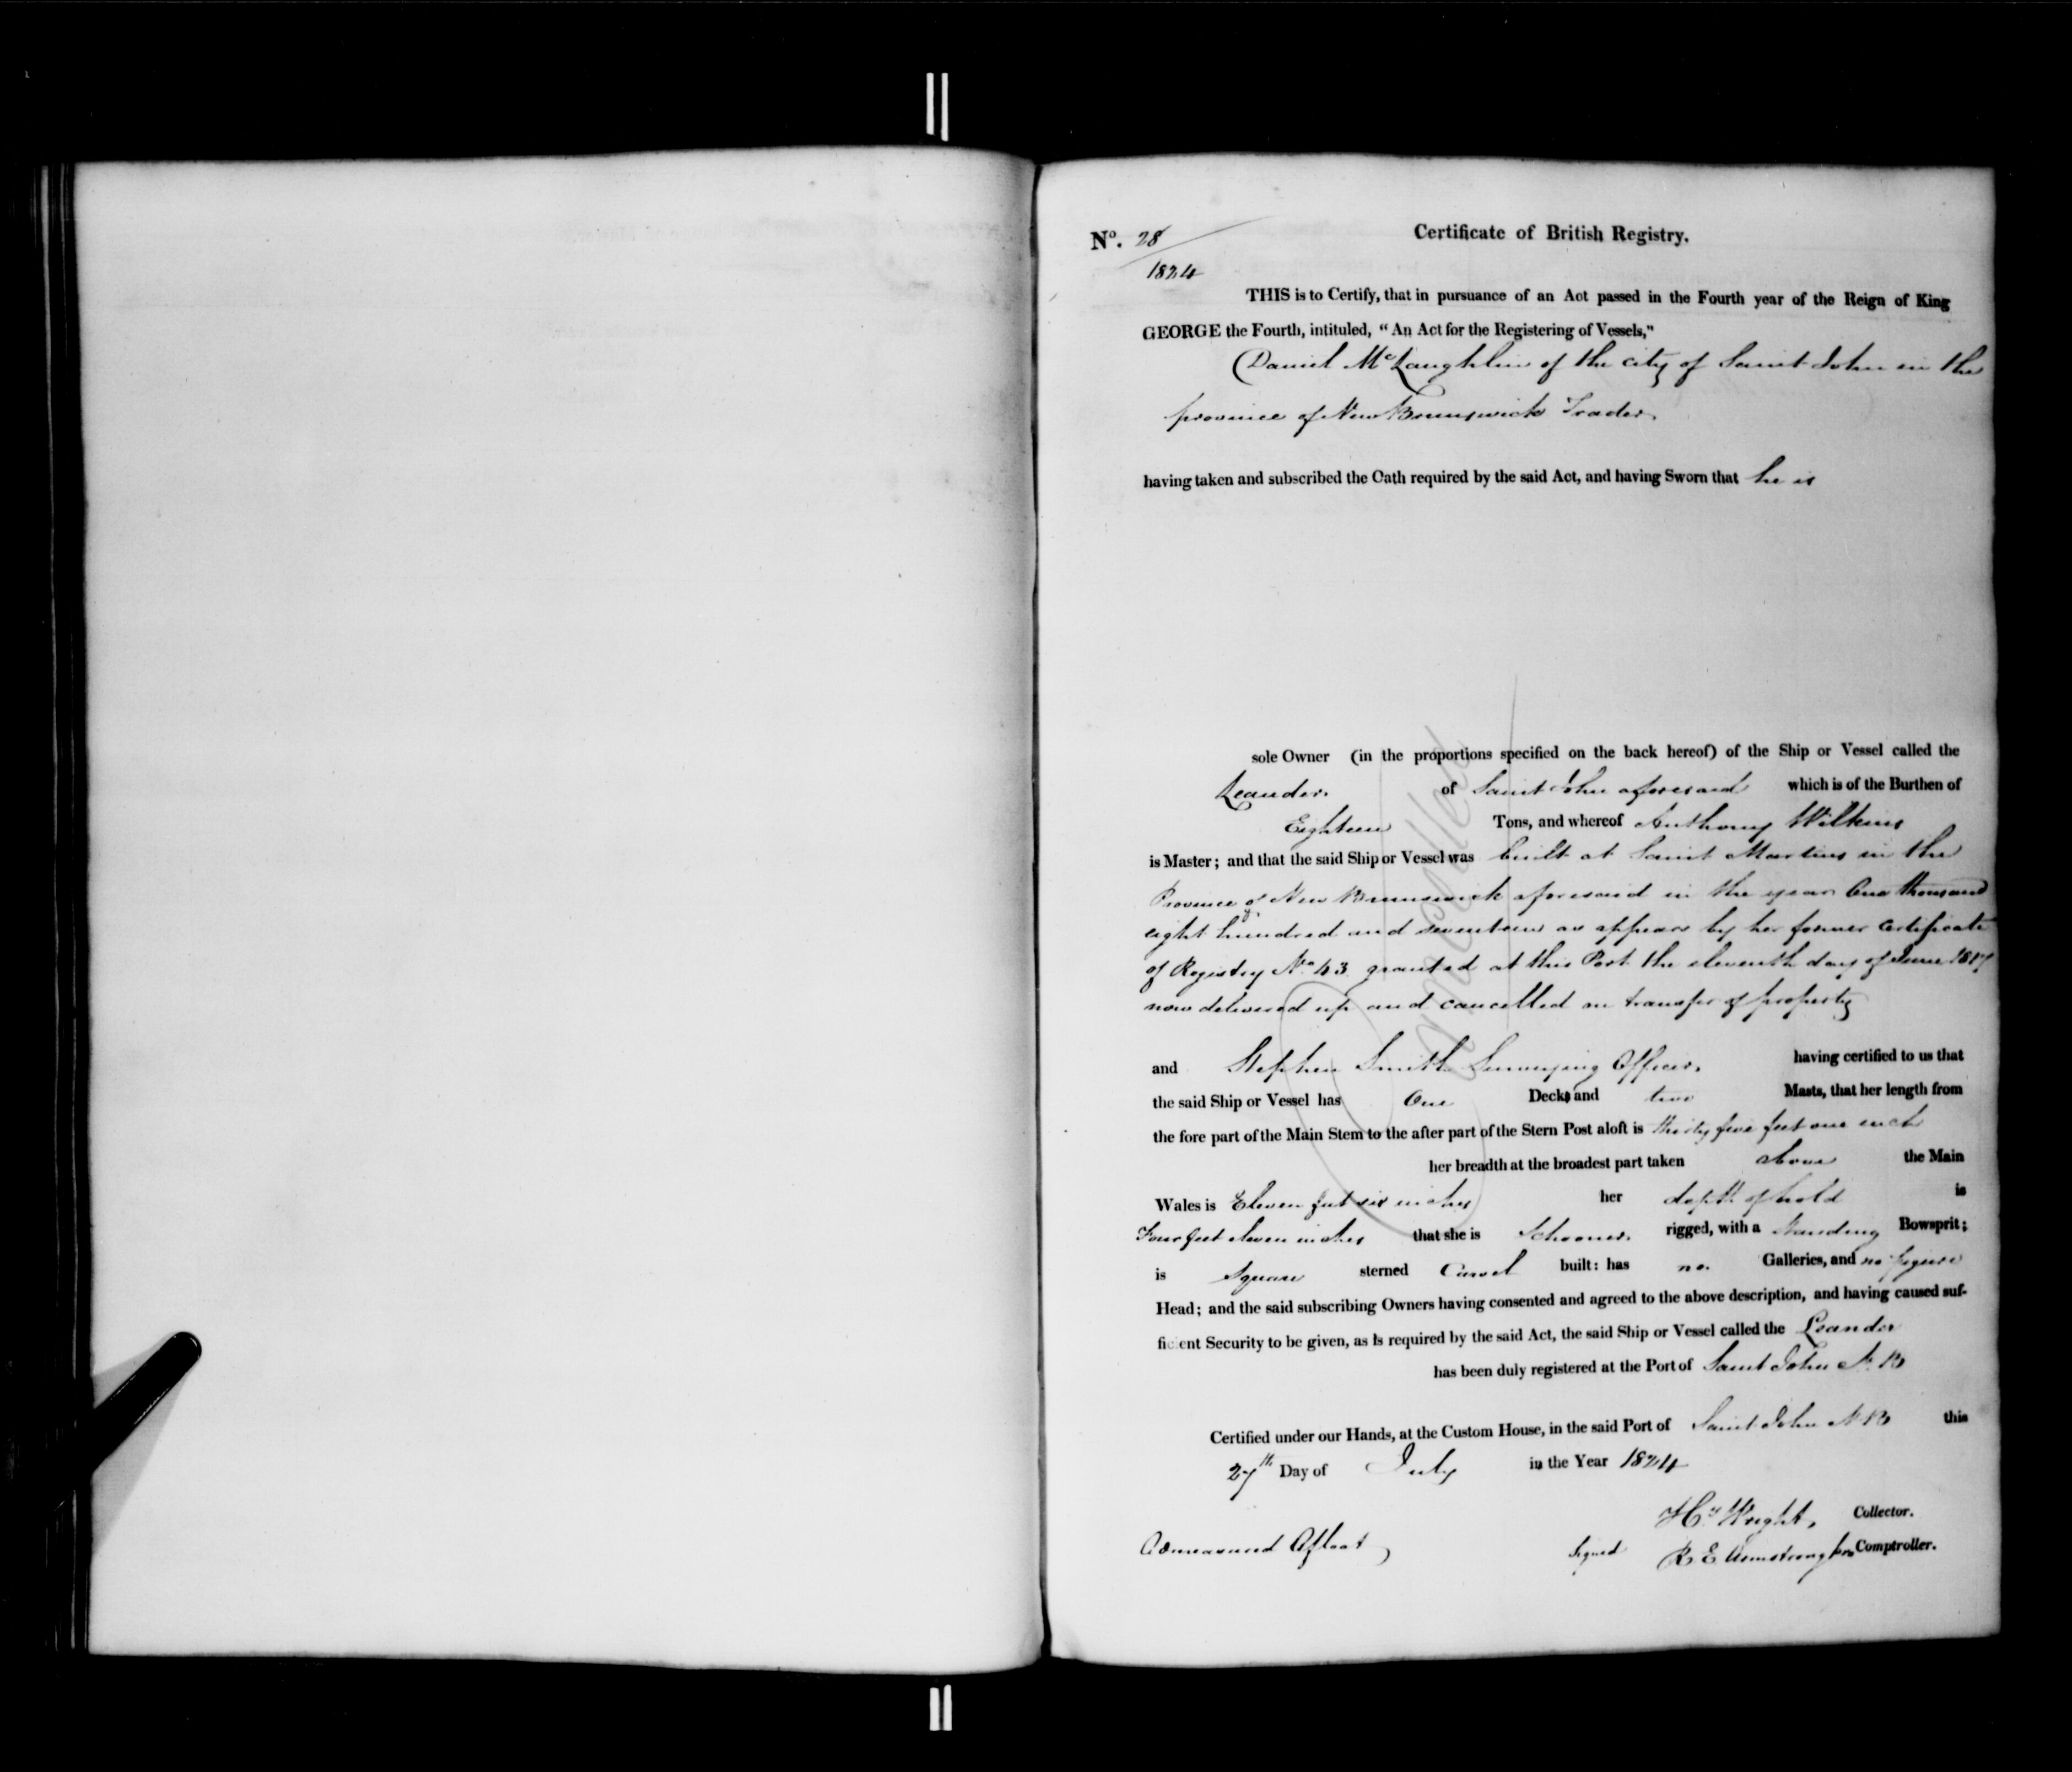 Nº. 28
Certificate of British Registry.
1824
THIS is to Certify, that in pursuance of an Act passed in the Fourth year of the Reign of King
GEORGE the Fourth, intituled, "An Act for the Registering of Vessels,"
Daniel McLaughlin of the city of Saint John in the
province of New Brunswick Trader
having taken and subscribed the Oath required by the said Act, and having Sworn that he is
sole Owner (in the proportions specified on the back hereof) of the Ship or Vessel called the
Leander of Saint John aforesaid which is of the Burthen of
Eighteen Tons, and whereof Anthony Wilkins
is Master; and that the said Ship or Vessel was built at Saint Martins in the
Province of New Brunswick aforesaid in the year One thousand
eight hundred and seventeen as appears by her former Certificate
of Registry No 43 granted at this Port the eleventh day of June 1817
now delivered up and cancelled on transfer of property
Cancelled
and Stephen Smith Surveying Officer. having certified to us that
the said Ship or Vessel has One Deck and two Masts, that her length from
the fore part of the Main Stem to the after part of the Stern Post aloft is thirty five feet one inch
her breadth at the broadest part taken above the Main
Wales is Eleven feet six inches her depth of hold is
Four feet eleven inches that she is Schooner rigged, with a standing Bowsprit;
is Square sterned Carvel built: has no Galleries, and no figure
Head; and the said subscribing Owners having consented and agreed to the above description, and having caused suf-
ficient Security to be given, as is required by the said Act, the said Ship or Vessel called the Leander
has been duly registered at the Port of Saint John N.B
Certified under our Hands, at the Custom House, in the said Port of Saint John N.B this
27th Day of July in the Year 1824
Hy Wright, Collector.
Admeasured Afloat Signed R E Armstrong Comptroller.